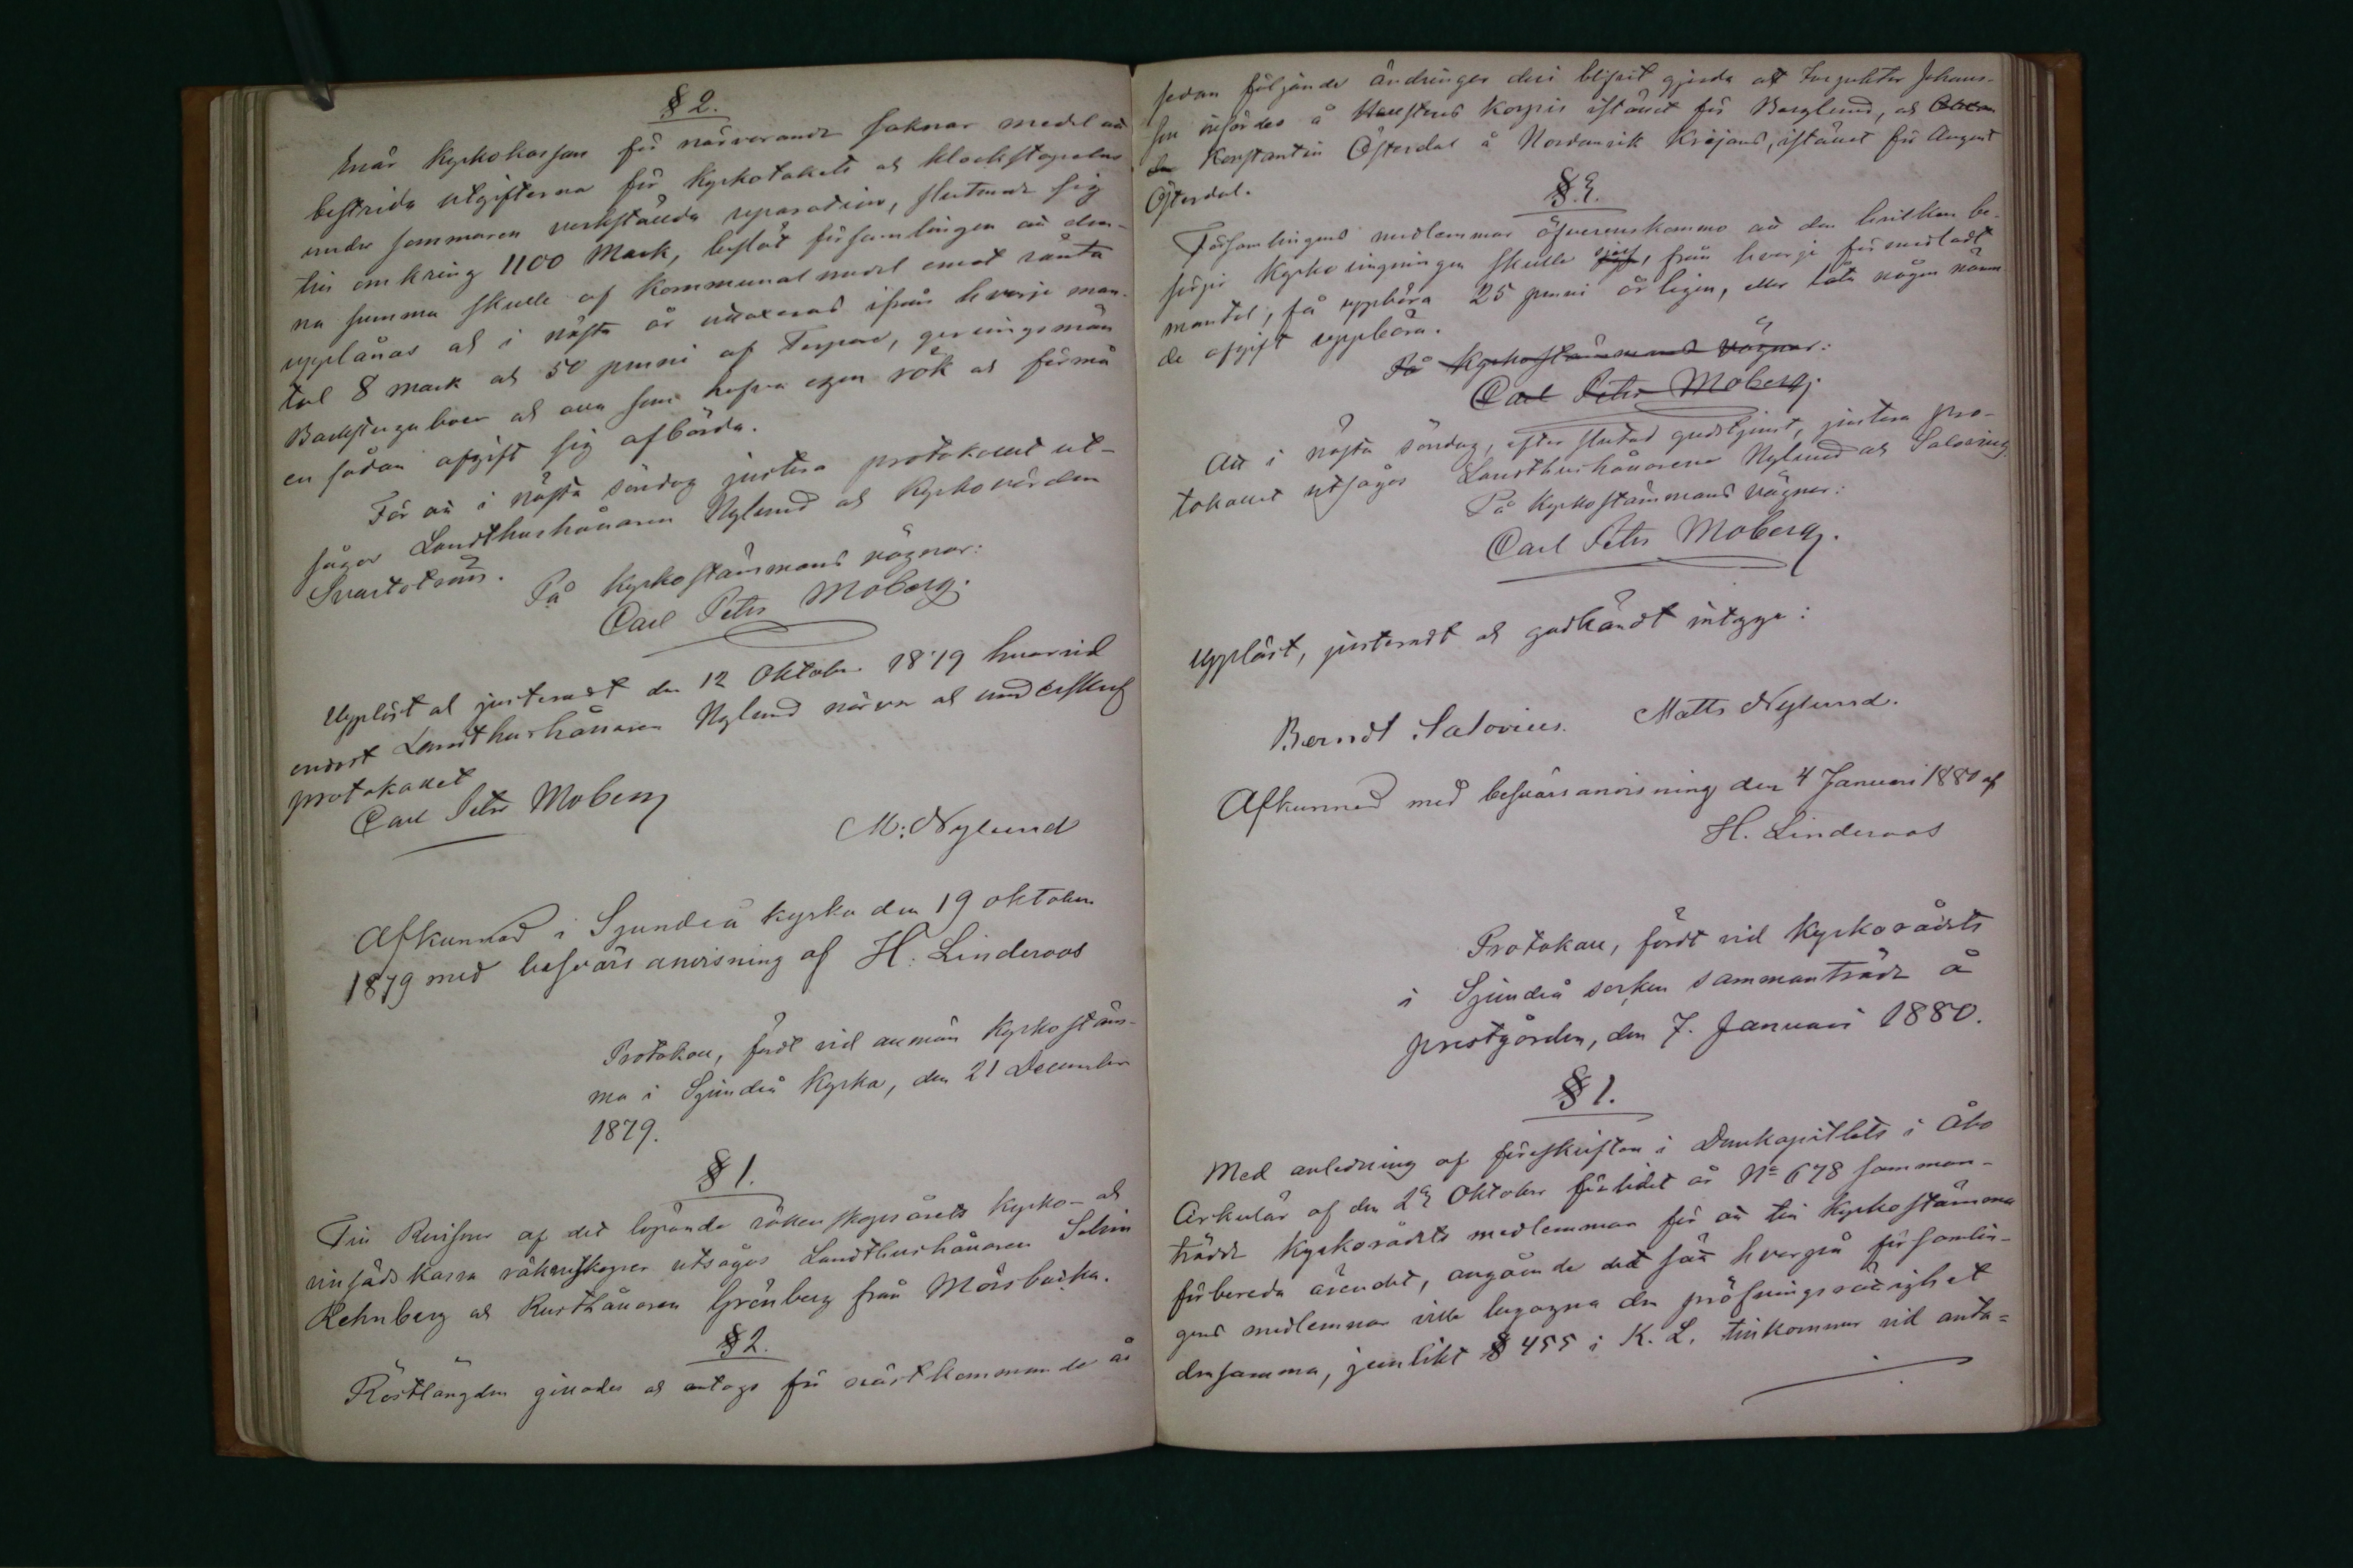 § 2.
Enär Kyrkokassan för närvarande saknar medel att
bestrida utgifterna för Kyrkotakets och klockstapelns
under sommaren verkställda reparation, slutande sig
till omkring 1100 Mark, beslöt församlingen att den-
na summa skulle af Kommunal medel emot ränta
upplånas och i nästa år uttaxeras ifrån hvarje man-
tal 8 mark och 50 penni af Torpare, gerningsmän
Backstuguboer och alla som hafva egen rök och förmå
en sådan afgift sig afbörda.
För att i nästa söndag justera protokollet ut-
sågos Landthushållaren Nylund och Kyrkovärden
Svartström.
På Kyrkostämmans vägnar:
Carl Petr Moberg.
Uppläst och justeradt den 12 Oktober 1879 hvarvid
endast Landthushållaren Nylund närvar och underskref
protokollet
Carl Petr Moberg
M: Nylund
Afkunnad i Sjundeå kyrka den 19 oktober
1879 med besvärs anvisning af H. Linderoos
Protokoll, fördt vid allmän Kyrkostäm-
ma i Sjundeå Kyrka, den 21 December
1879.
§ 1.
Till Revisorer af det löpande räkenskapsårets Kyrko- och
vinfäds kassa räkenskaper utsågos Landthushållaren Selim
Rehnberg och Rusthållaren Grönberg från Mörsbacka.
§ 2.
Röstlängden gillades och antogs för nästkommande år
sedan följande ändringar deri blifvit gjorda att Inspektor Johans-
son infördes å Korpis istället för Berglund, och
Konstantin Österdal å Nordanvik istället för August
Österdal.
§ 3.
Församlingens medlemmar öfverenskommo att den hvilken be-
sörjer Kyrko ringningen skulle sjelf, från hvarje förmedladt
mantal, få uppbära 25 penni årligen, eller låta någon nämn-
de afgift uppbära.
På Kyrkostämmans vägnar:
Carl Petr Moberg.
Att i nästa söndag, efter slutad gudstjenst, justera pro-
tokollet utsågos Landthushållarene Nylund och Salovius
På Kyrkostämmans vägnar:
Carl Petr Moberg.
Uppläst, justeradt och godkändt intyga:
Berndt Salovius. Matts Nylund.
Afkunnad med besvärsanvisning den 4 Januari 1880 af
H. Linderoos
Protokoll, fördt vid Kyrkorådets
i Sjundeå socken sammanträde å
prestgården, den 7. Januari 1880.
§ 1.
Med anledning af föreskriften i Domkapitlets i Åbo
Cirkulär af den 29 Oktober förlidet år No 678 samman-
trädde Kyrkorådets medlemmar för att till Kyrkostämma
förbereda ärendet, angående det sätt hvarpå församlin-
gens medlemmar ville begagna den pröfningsrättighet
densamma, jemlikt § 455 i K. L. tillkommer vid anta-